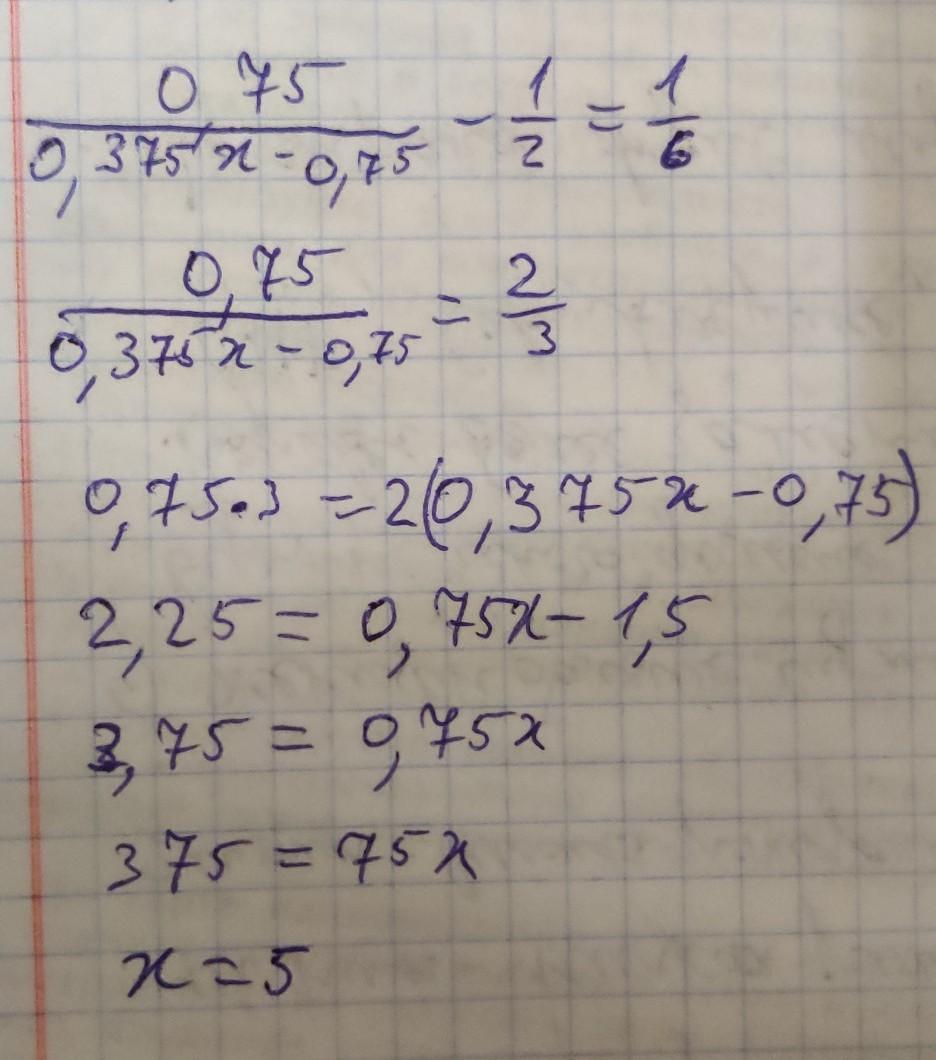 0,75/(0,375x - 0,75) - 1/2 = 1/6
0,75/(0,375x - 0,75) = 2/3
0,75·3 = 2(0,375x - 0,75)
2,25 = 0,75x - 1,5
3,75 = 0,75x
375 = 75x
x = 5